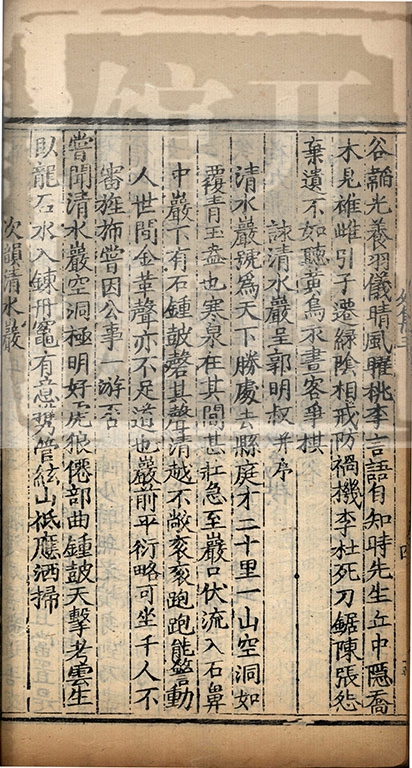 谷韜光養羽儀晴風暄桃李言語自知時先生丘中隱喬
木見雄雌引子遷綠陰相戒防禍機李杜死刀鋸陳張怨
棄遺不如聽黃鳥永晝客爭棋
詠清水巖呈郭明叔并序
清水巖號為天下勝處去縣庭才二十里一山空洞如
覆青玉盎也寒泉在其間甚壯急至巖口伏流入石鼻
中巖下有石鍾鼓磬其聲清越不敞衮衮跑跑能警動
人世間金革聲亦不足道也巖前平衍略可坐千人不
審旌斾嘗因公事一游否
嘗聞清水巖空洞極明好虎狼僊部曲鍾鼓天擊考雲生
臥龍石水入鍊丹竈有意㩦管絃山祗應洒掃
次韻清水巖